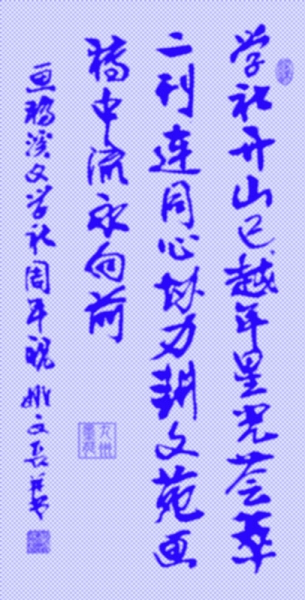 学社开山已越年星光荟萃
二刊连同心协力耕文苑画
稿中流永向前
画稿溪文学社周年 姚文長并书